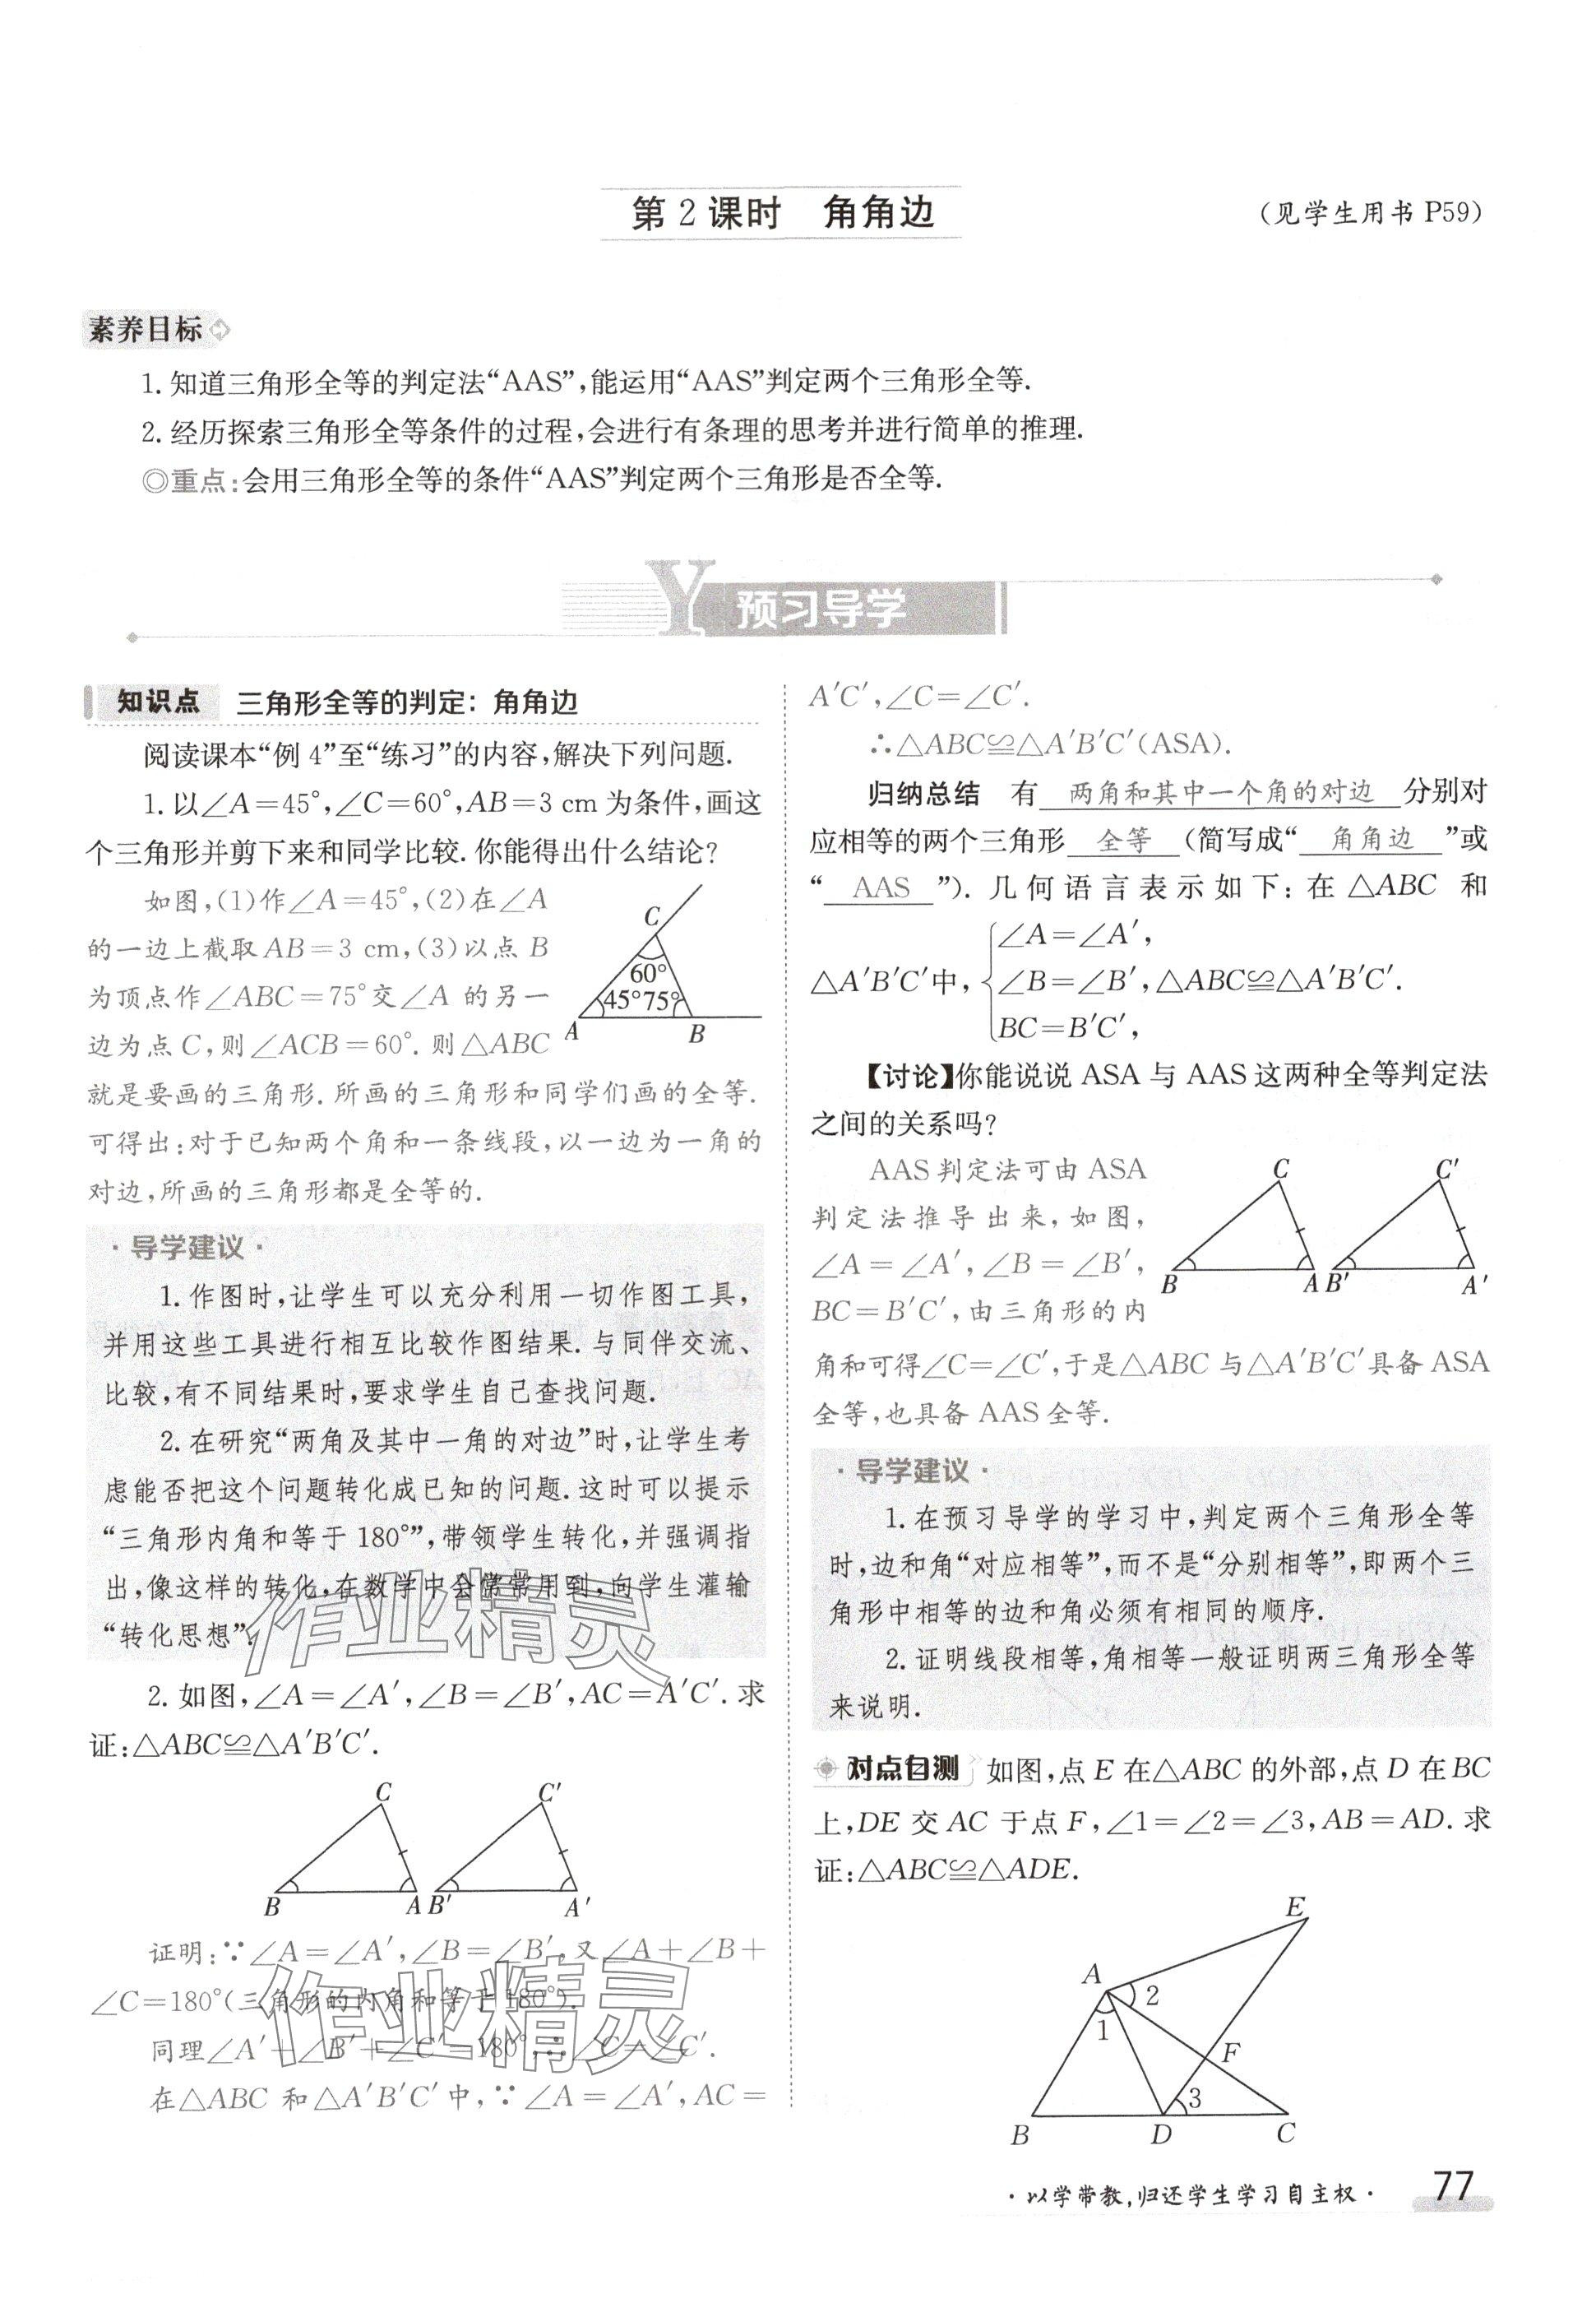 第 2 课时　角角边
（见学生用书 P59）
素养目标
1. 知道三角形全等的判定法“AAS”，能运用“AAS”判定两个三角形全等.
2. 经历探索三角形全等条件的过程，会进行有条理的思考并进行简单的推理.
◎重点：会用三角形全等的条件“AAS”判定两个三角形是否全等.
Y 预习导学
知识点　三角形全等的判定：角角边
阅读课本“例 4”至“练习”的内容，解决下列问题.
1. 以∠A=45°，∠C=60°，AB=3 cm 为条件，画这
个三角形并剪下来和同学比较. 你能得出什么结论？
如图，(1)作∠A=45°，(2)在∠A
的一边上截取 AB=3 cm，(3)以点 B
为顶点作∠ABC=75°交∠A 的另一
边为点 C，则∠ACB=60°. 则△ABC
就是要画的三角形. 所画的三角形和同学们画的全等.
可得出：对于已知两个角和一条线段，以一边为一角的
对边，所画的三角形都是全等的.
C
60°
45°75°
A
B
·导学建议·
1. 作图时，让学生可以充分利用一切作图工具，
并用这些工具进行相互比较作图结果. 与同伴交流、
比较，有不同结果时，要求学生自己查找问题.
2. 在研究“两角及其中一角的对边”时，让学生考
虑能否把这个问题转化成已知的问题. 这时可以提示
“三角形内角和等于 180°”，带领学生转化，并强调指
出，像这样的转化，在数学中会常常用到，向学生灌输
“转化思想”.
作业精灵
2. 如图，∠A=∠A′，∠B=∠B′，AC=A′C′. 求
证：△ABC≌△A′B′C′.
C C′
B A B′ A′
证明：∵∠A=∠A′，∠B=∠B′，又∠A+∠B+
∠C=180°(三角形的内角和等于 180°).
同理∠A′+∠B′+∠C′=180°，∴∠C=∠C′.
在△ABC 和△A′B′C′中，∵∠A=∠A′，AC=
作业精灵
A′C′，∠C=∠C′.
∴△ABC≌△A′B′C′(ASA).
归纳总结　有 两角和其中一个角的对边 分别对
应相等的两个三角形 全等 （简写成“ 角角边 ”或
“ AAS ”）. 几何语言表示如下：在 △ABC 和
△A′B′C′中，
∠A=∠A′，
∠B=∠B′，△ABC≌△A′B′C′.
BC=B′C′，
【讨论】你能说说 ASA 与 AAS 这两种全等判定法
之间的关系吗？
AAS 判定法可由 ASA
判定法推导出来，如图，
∠A=∠A′，∠B=∠B′，
BC=B′C′，由三角形的内
角和可得∠C=∠C′，于是△ABC 与△A′B′C′具备 ASA
全等，也具备 AAS 全等.
C C′
B A B′ A′
·导学建议·
1. 在预习导学的学习中，判定两个三角形全等
时，边和角“对应相等”，而不是“分别相等”，即两个三
角形中相等的边和角必须有相同的顺序.
2. 证明线段相等，角相等一般证明两三角形全等
来说明.
对点自测　如图，点 E 在△ABC 的外部，点 D 在 BC
上，DE 交 AC 于点 F，∠1=∠2=∠3，AB=AD. 求
证：△ABC≌△ADE.
E
A
2
1
F
3
B D C
·以学带教，归还学生学习自主权·
77